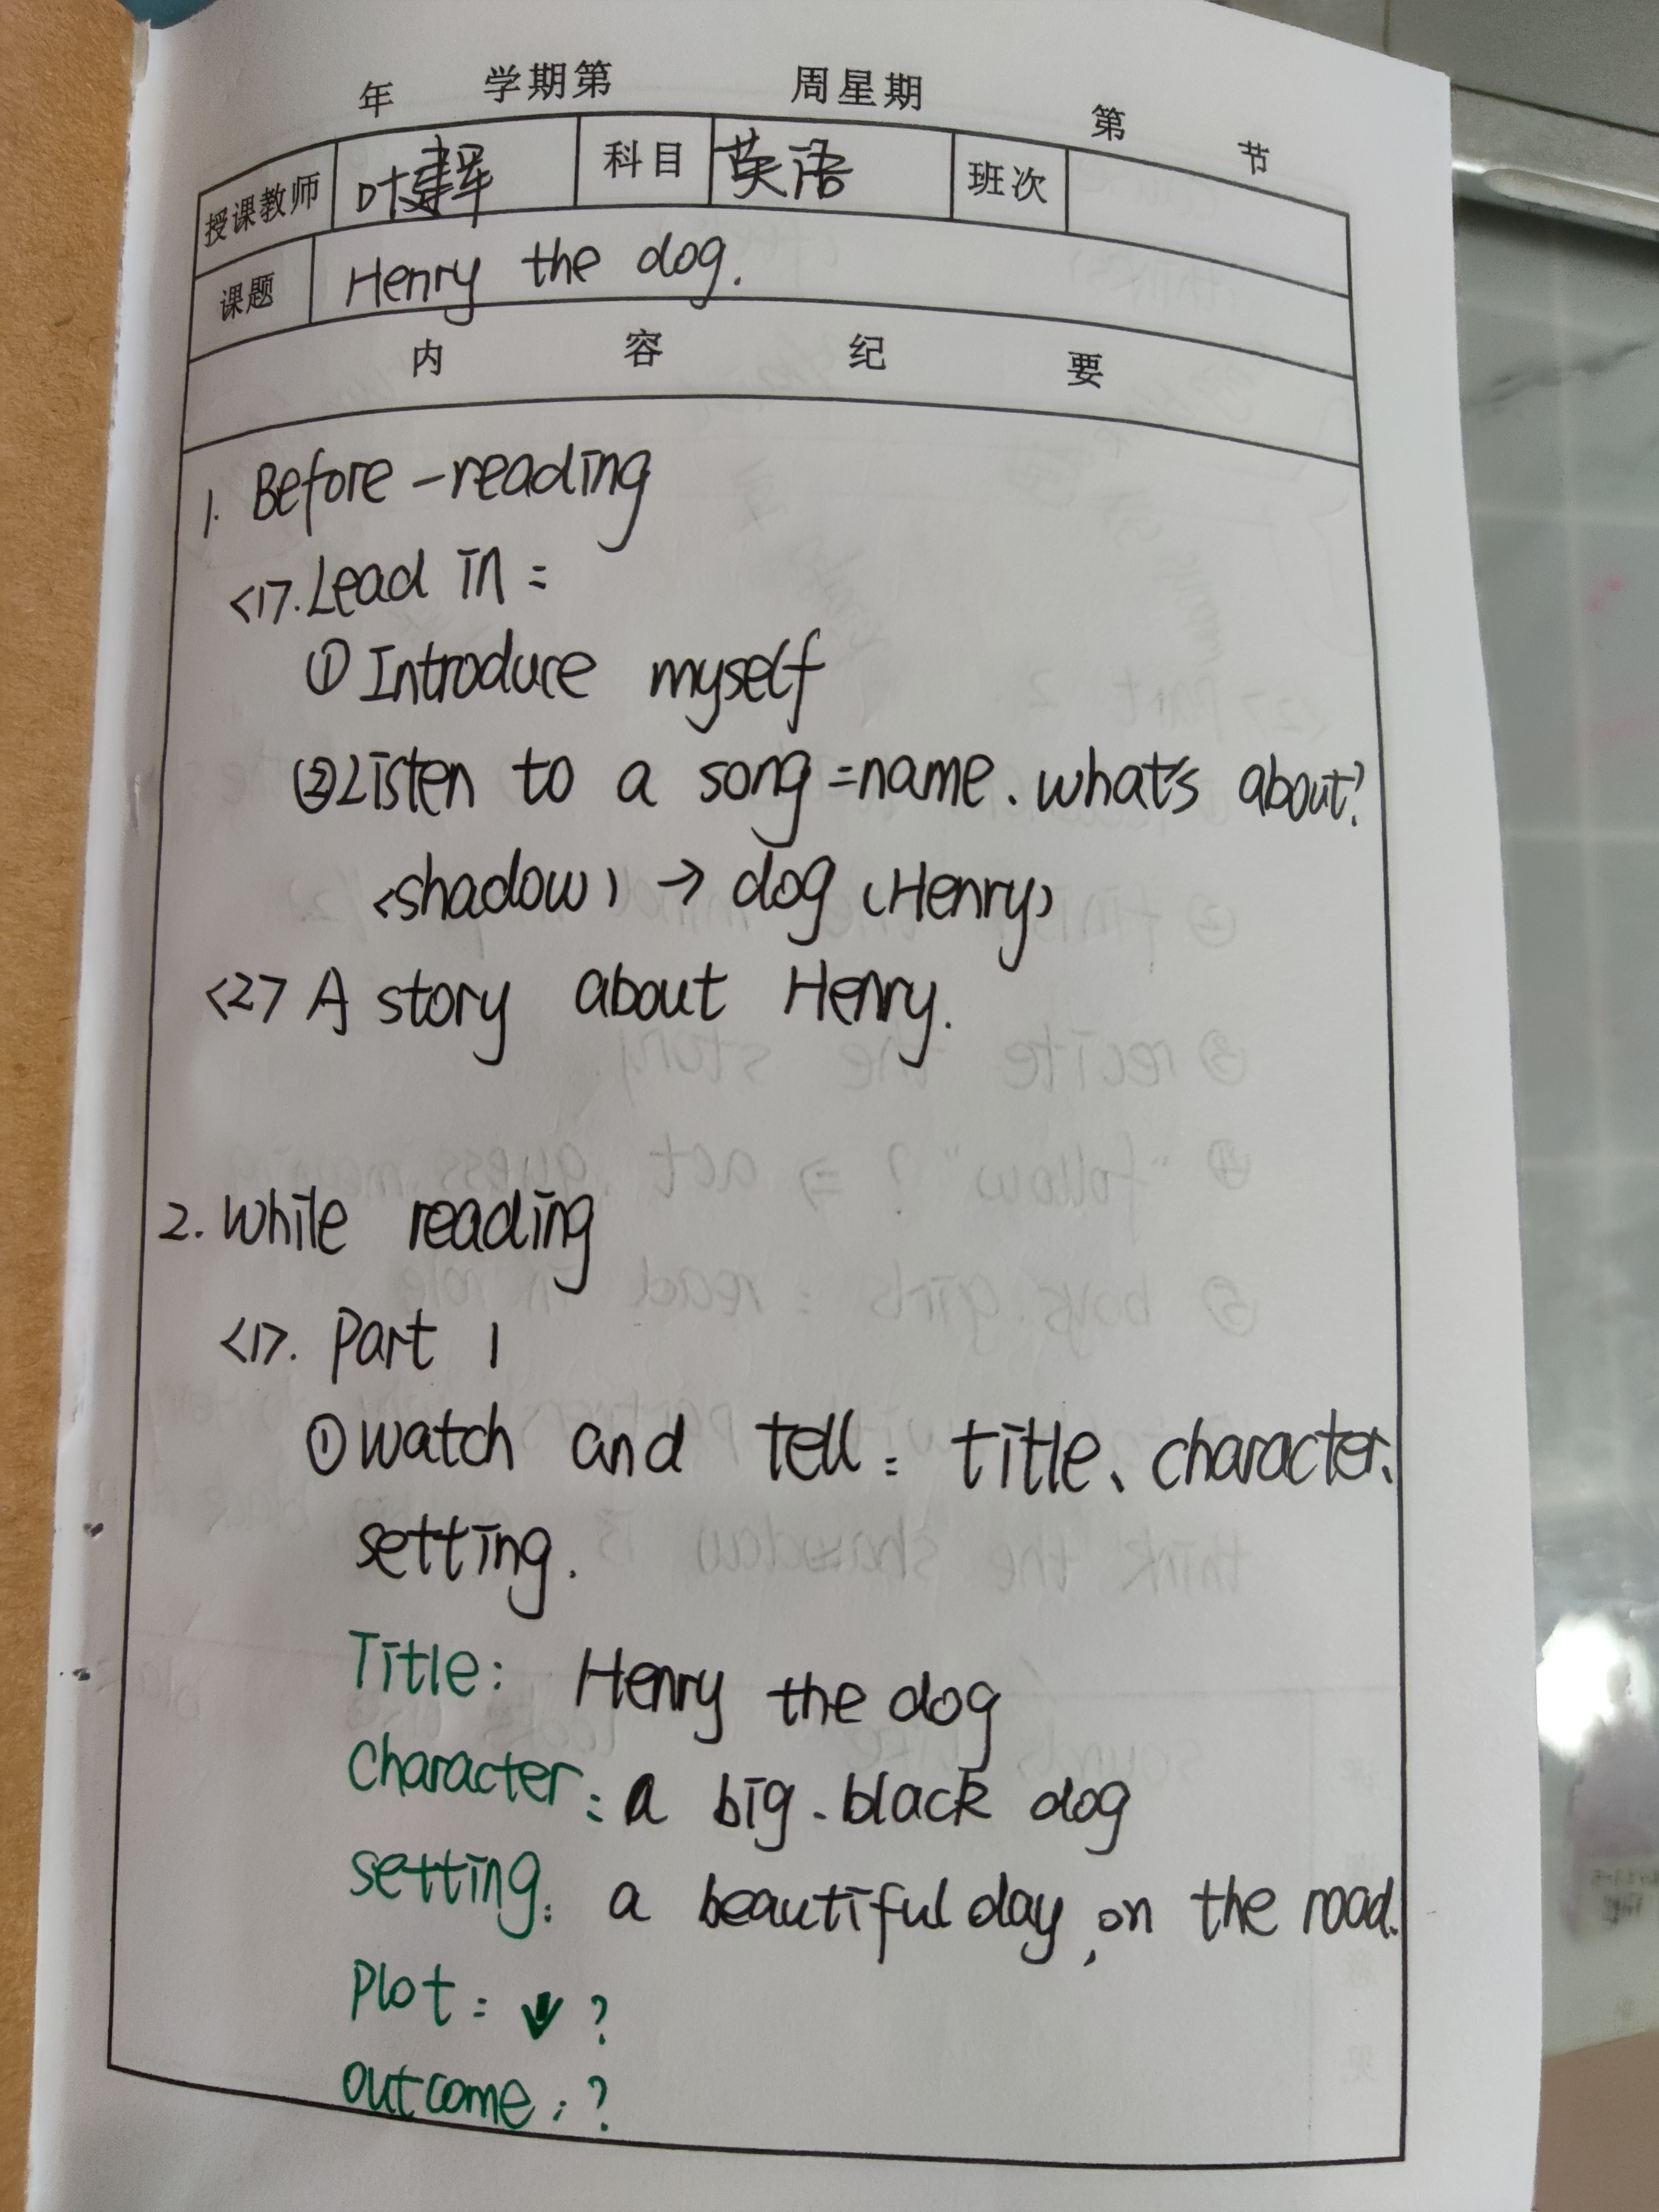 年 学期第 周星期 第 节
授课教师 叶建军 科目 英语 班次
课题 Henry the dog.
内 容 纪 要
1. Before-reading
<1>. Lead in:
① Introduce myself
② Listen to a song: name. what's about?
<shadow) → dog (Henry)
<2> A story about Henry.
2. While reading
<1>. Part 1
① watch and tell: title、character、
setting.
Title: Henry the dog
Character: a big. black dog
setting: a beautiful day, on the road.
Plot: ↓ ?
outcome: ?